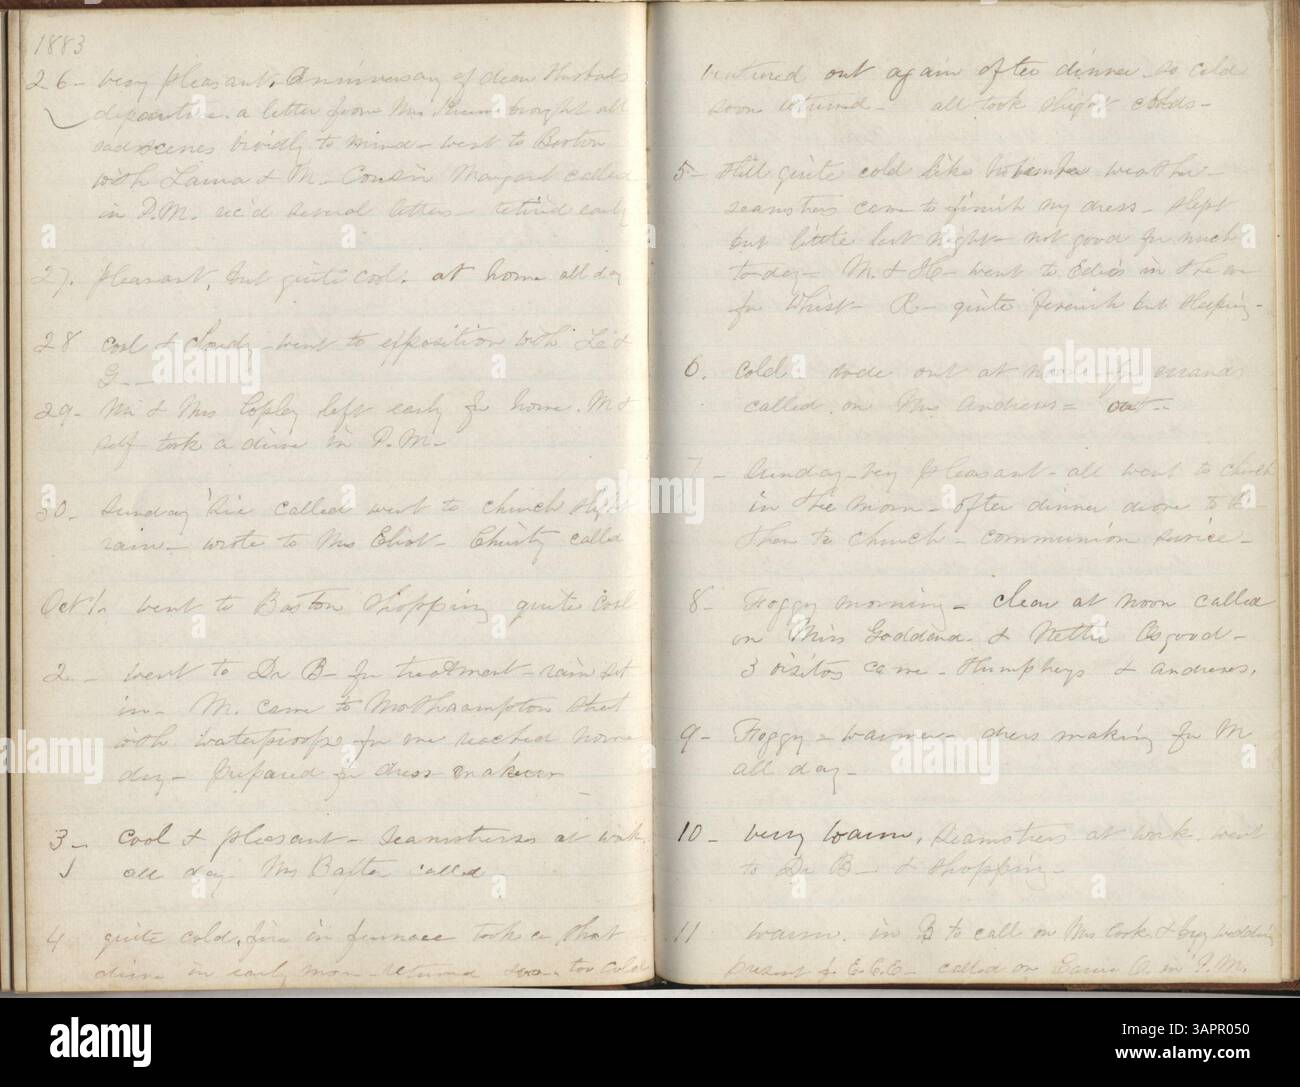 1883
26- very pleasant. Anniversary of dear Husbands
departure. a letter from Mrs brought all
sad scenes vividly to mind - went to Boston
with Laura & M. Cousin Margaret called
in P.M. rec'd several letters - retired early
27. pleasant, but quite cool. at home all day
28 cool & cloudy - went to exposition with &
G. -
29- Mr & Mrs Copley left early for home. M &
self took a drive in P.M.
30- Sunday called went to church slight
rain - wrote to Mrs Eliot - Christy called
Oct 1. went to Boston shopping quite cool
2. - went to Dr B- for treatment - rain set
in - M. came to Northhampton Street
with waterproofs for me reached home
dry - prepared for dress makers
3- cool & pleasant - seamstresses at work
all day. Mrs Bafter called
4 quite cold. fire in furnace took a short
drive in early morn - returned soon. too cold
ventured out again after dinner - so cold
soon returned - all took slight colds -
5- still quite cold like November weather -
seamstress came to finish my dress - slept
but little last night - not good for much
to-day - M. & H- went to in the eve
for Whist - R- quite feverish but sleeping -
6. cold - rode out at noon for errands
called on Mrs Andrews - out -
7 - Sunday - very pleasant - all went to church
in the morn - after dinner drove to
then to church - communion service -
8- Foggy morning - clear at noon called
on Miss Goddard. & Nettie Osgood -
3 visitors came - Humphreys & Andrews.
9- Foggy - warmer - dress making for M
all day -
10- very warm. seamstress at work. went
to Dr B- & shopping -
11 warm. in B to call on Mrs Cook &  wedding
present for E.C.E- called on in P.M.
alamy
Image ID: 3APR050
www.alamy.com